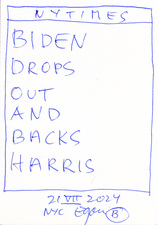 NYTIMES
BIDEN
DROPS
OUT
AND
BACKS
HARRIS
21 VII 2024
NYC
B